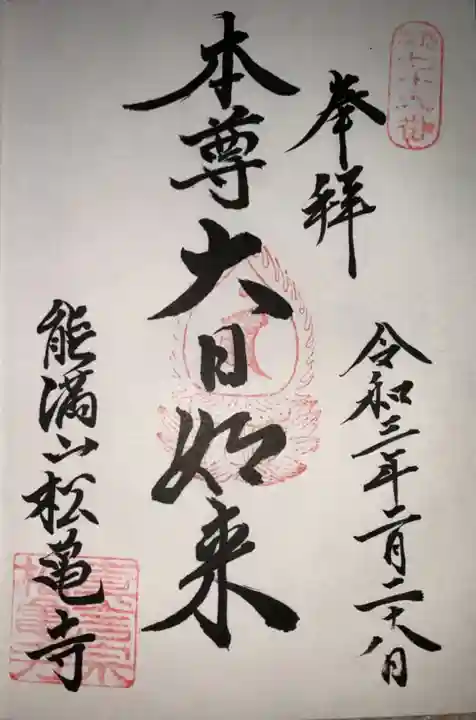 奉拝
令和三年二月二十八日
本尊大日如来
能満山松亀寺